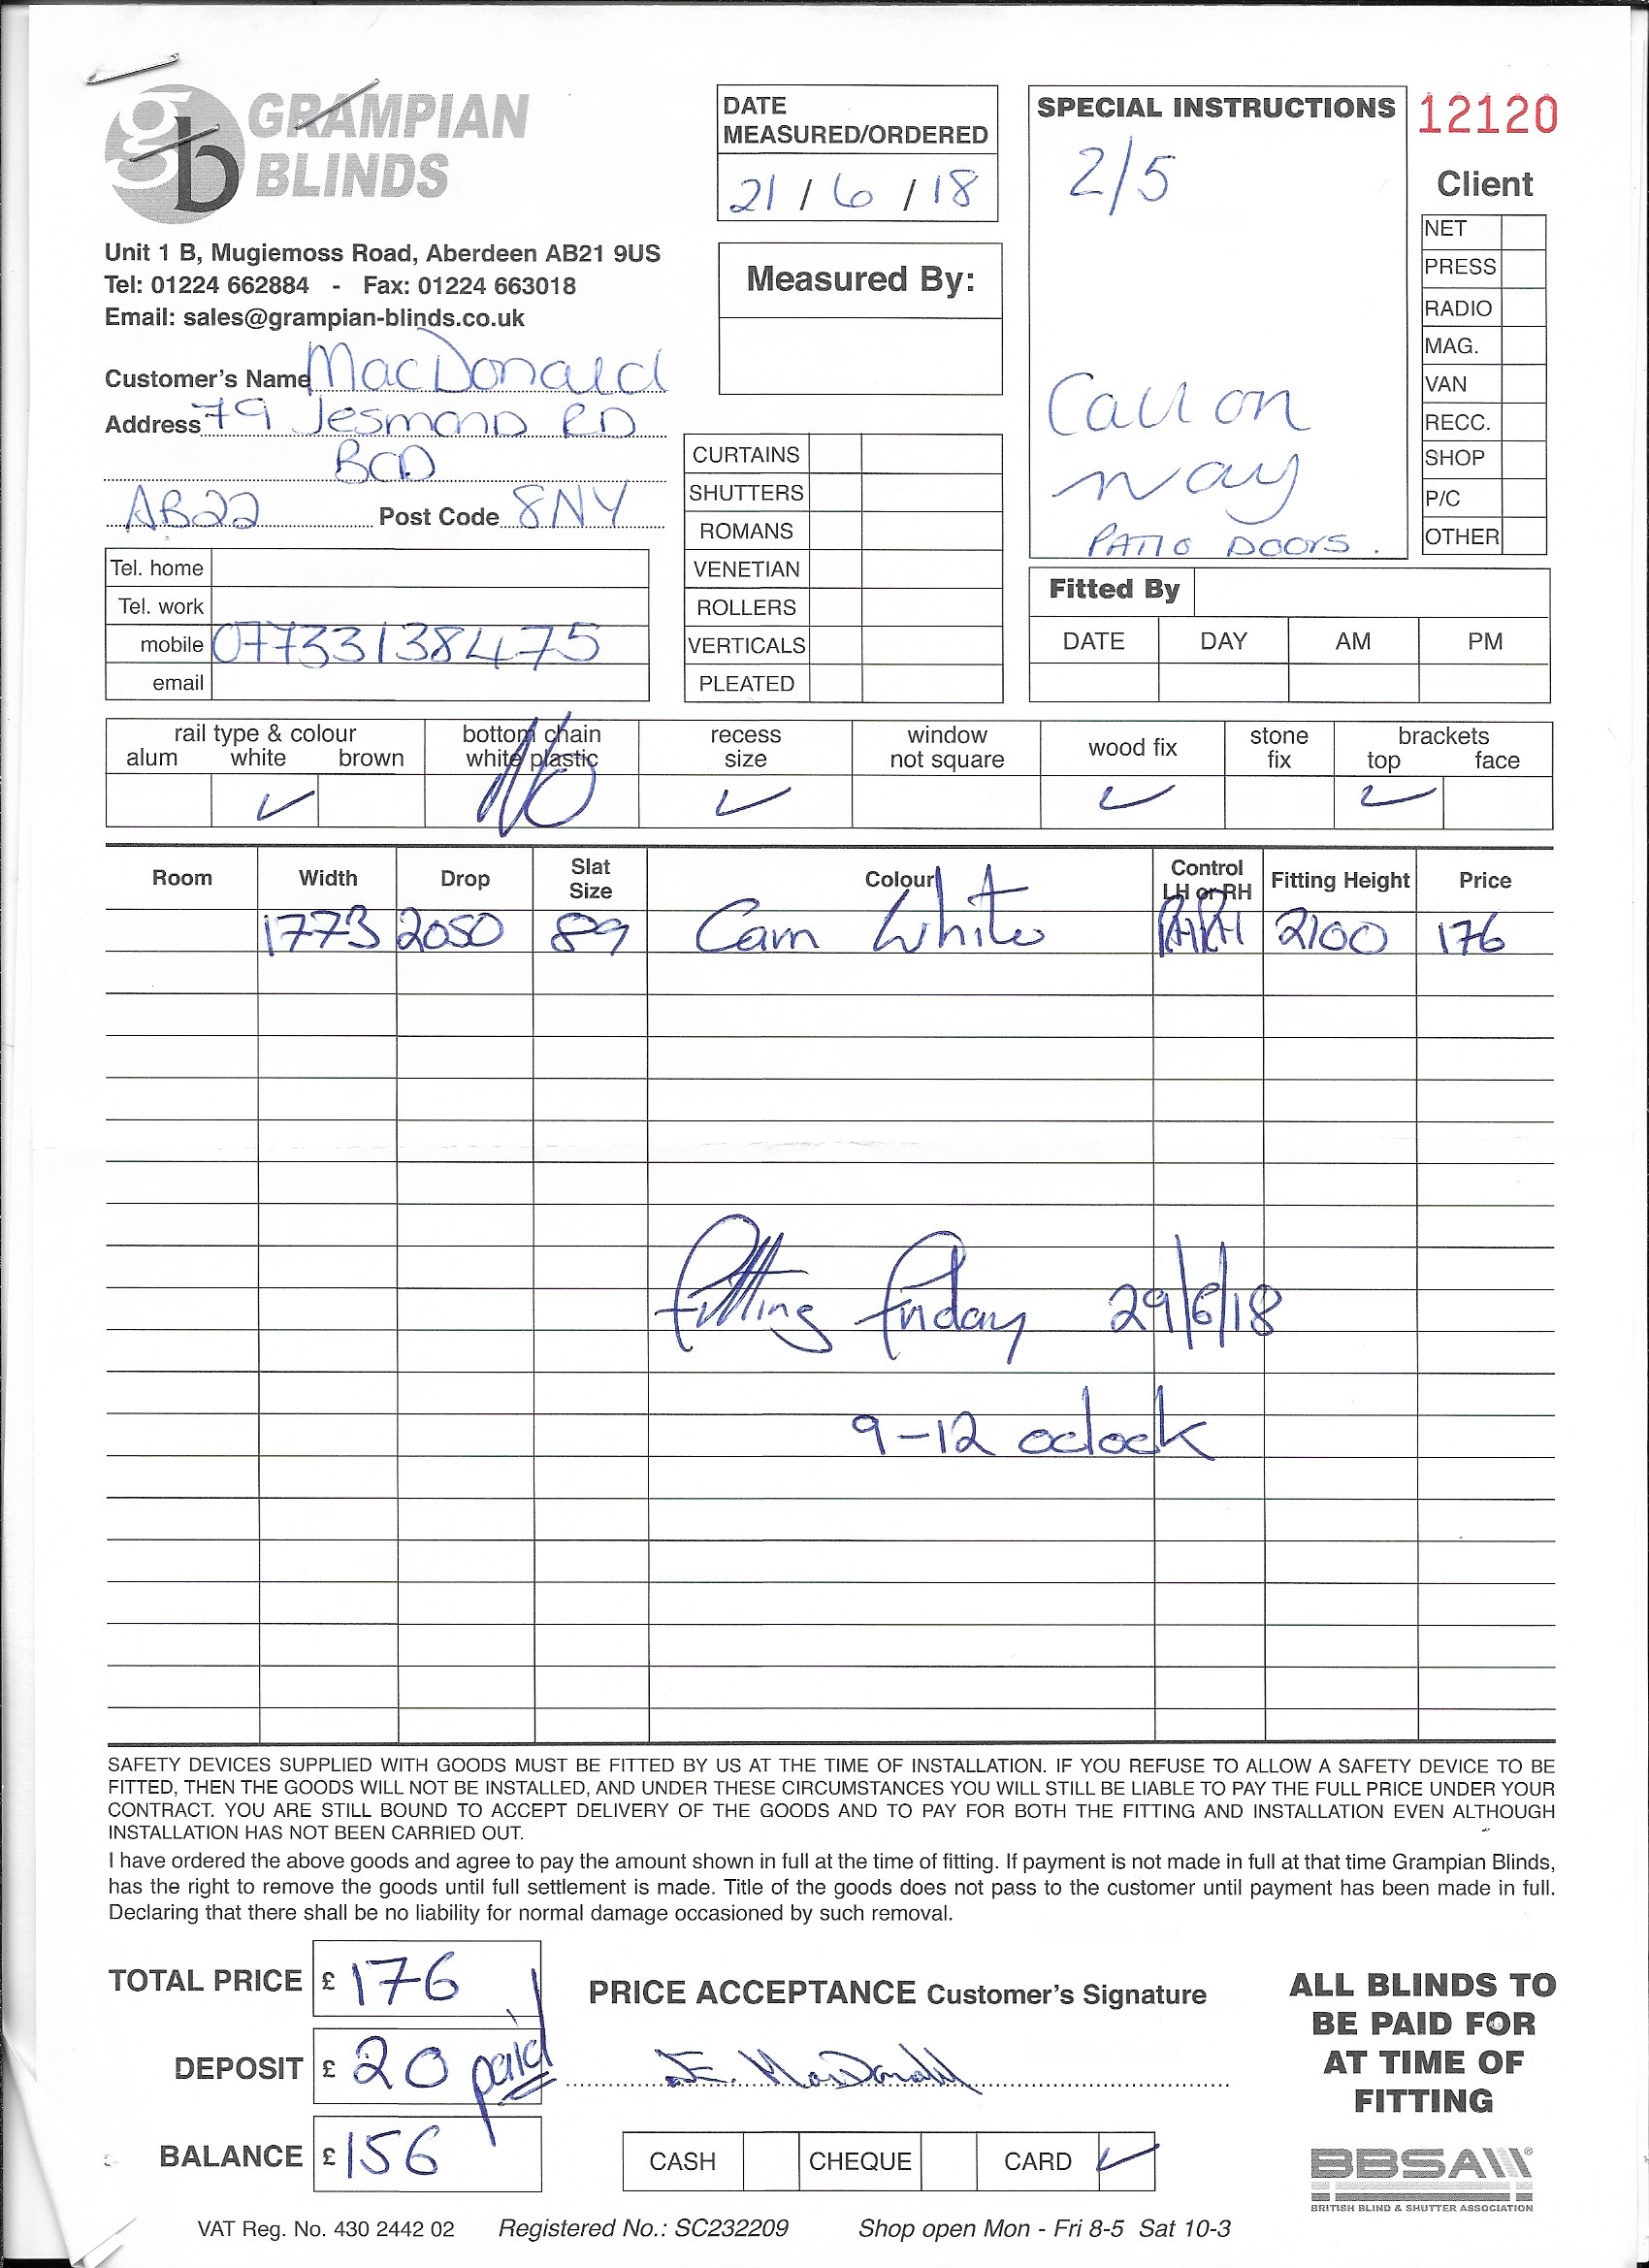 GRAMPIAN
BLINDS
Unit 1 B, Mugiemoss Road, Aberdeen AB21 9US
Tel: 01224 662884 - Fax: 01224 663018
Email: sales@grampian-blinds.co.uk
Customer's Name MacDonald
Address 79 Jesmond RD
BOD
AB22 Post Code 8NY
Tel. home
Tel. work
mobile 07733138475
email
DATE
MEASURED/ORDERED
21 / 6 / 18
Measured By:
CURTAINS
SHUTTERS
ROMANS
VENETIAN
ROLLERS
VERTICALS
PLEATED
SPECIAL INSTRUCTIONS
2/5
Call on
way
PATIO DOORS.
12120
Client
NET
PRESS
RADIO
MAG.
VAN
RECC.
SHOP
P/C
OTHER
Fitted By
DATE DAY AM PM
rail type & colour bottom chain recess window wood fix stone brackets
alum white brown white plastic size not square fix top face
NO
Room Width Drop Slat Size Colour Control LH or RH Fitting Height Price
1773 2050 89 Cam White RH 2100 176
fitting friday 29/6/18
9-12 oclock
SAFETY DEVICES SUPPLIED WITH GOODS MUST BE FITTED BY US AT THE TIME OF INSTALLATION. IF YOU REFUSE TO ALLOW A SAFETY DEVICE TO BE
FITTED, THEN THE GOODS WILL NOT BE INSTALLED, AND UNDER THESE CIRCUMSTANCES YOU WILL STILL BE LIABLE TO PAY THE FULL PRICE UNDER YOUR
CONTRACT. YOU ARE STILL BOUND TO ACCEPT DELIVERY OF THE GOODS AND TO PAY FOR BOTH THE FITTING AND INSTALLATION EVEN ALTHOUGH
INSTALLATION HAS NOT BEEN CARRIED OUT.
I have ordered the above goods and agree to pay the amount shown in full at the time of fitting. If payment is not made in full at that time Grampian Blinds,
has the right to remove the goods until full settlement is made. Title of the goods does not pass to the customer until payment has been made in full.
Declaring that there shall be no liability for normal damage occasioned by such removal.
TOTAL PRICE £ 176
DEPOSIT £ 20 paid
BALANCE £ 156
PRICE ACCEPTANCE Customer's Signature
E. MacDonald
CASH CHEQUE CARD
ALL BLINDS TO
BE PAID FOR
AT TIME OF
FITTING
BBSA
BRITISH BLIND & SHUTTER ASSOCIATION
VAT Reg. No. 430 2442 02 Registered No.: SC232209 Shop open Mon - Fri 8-5 Sat 10-3